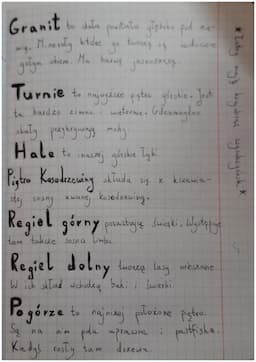 Granit to skała powstała głęboko pod zie-
mią. Minerały które go tworzą są widoczne
gołym okiem. Ma barwę jasnoszarą.
Turnie to najwyższe piętro górskie. Jest
tu bardzo zimno i wietrznie. Gdzieniegdzie
skały przykrywają mchy
Hale to inaczej górskie łąki.
Piętro Kosodrzewiny składa się z krzewia-
stej sosny zwanej kosodrzewiną.
Regiel górny porastają świerki. Występuje
tam także sosna limba.
Regiel dolny tworzą lasy mieszane.
W ich skład wchodzą buki i świerki
Pogórze to najniżej położone piętro.
Są na nim pola uprawne i pastwiska.
Kiedyś rosły tam drzewa.